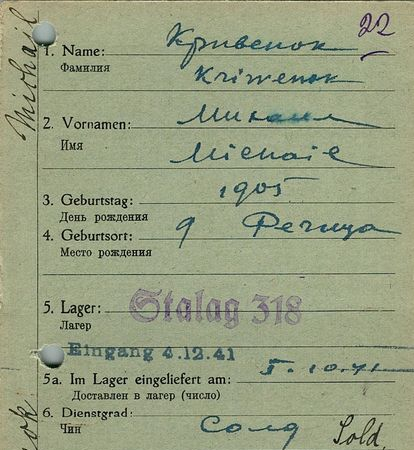 22
Michail
1. Name: Кривенок
Фамилия Kriwenok
2. Vornamen: Михаил
Имя Michail
1905
3. Geburtstag:
День рождения
4. Geburtsort: Речица
Место рождения
5. Lager: Stalag 318
Лагер
Eingang 4.12.41
5a. Im Lager eingeliefert am:
Доставлен в лагер (число)
6. Dienstgrad: Солд Sold.
Чин
ok.